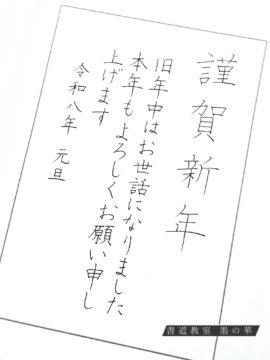 謹賀新年
旧年中はお世話になりました
本年もよろしくお願い申し
上げます
令和八年 元旦
書道教室 墨の華